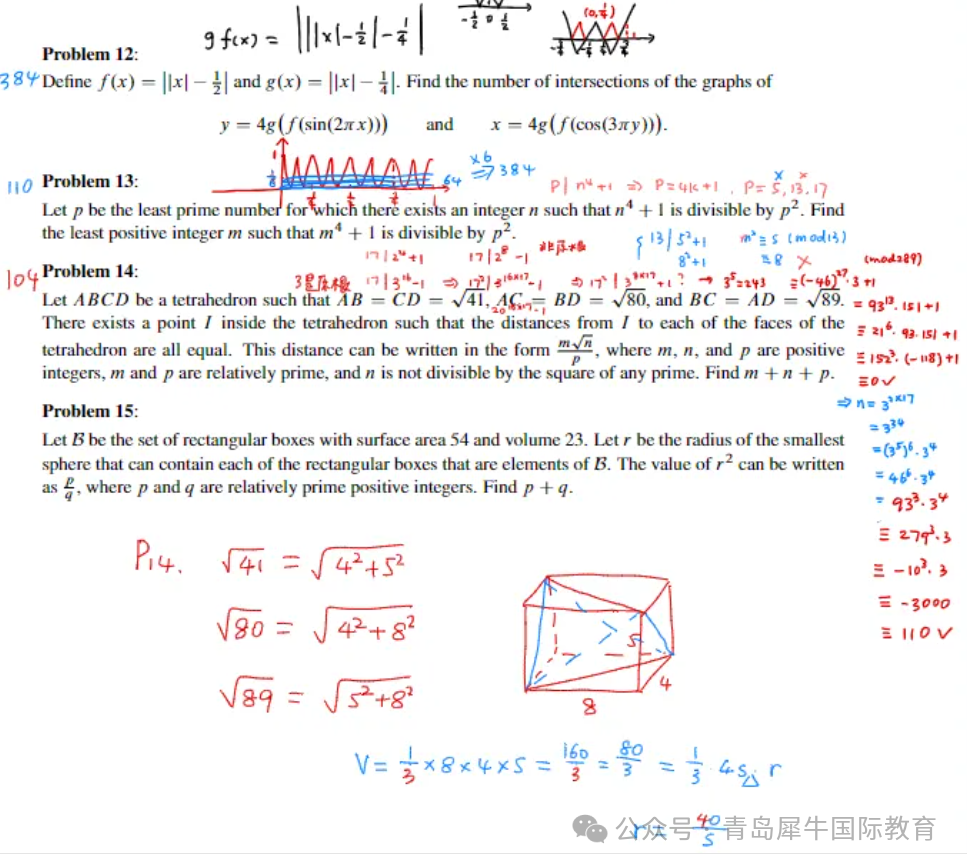 g f(x) = |||x|-1/2|-1/4|
-1/2 0 1/2
(0,1/4)
Problem 12:
384
Define f(x) = ||x| − 1/2| and g(x) = ||x| − 1/4|. Find the number of intersections of the graphs of
y = 4g(f(sin(2πx))) and x = 4g(f(cos(3πy))).
×6
⇒ 384
64
110
Problem 13:
P | n⁴+1 ⇒ P=4k+1 . P= 5, 13. 17
Let p be the least prime number for which there exists an integer n such that n⁴ + 1 is divisible by p². Find
the least positive integer m such that m⁴ + 1 is divisible by p².
13 | 5²+1 m²≡5 (mod13)
8²+1 ≡8 ×
17 | 2⁴+1 17 | 2⁸-1
104
Problem 14:
17 | 3¹⁶-1 ⇒ 17² | 3¹⁶ˣ¹⁷-1 ⇒ 17² | 3⁸ˣ¹⁷+1 ? → 3⁵=243 ≡(-46)²⁷·3+1
(mod289)
Let ABCD be a tetrahedron such that AB = CD = √41, AC = BD = √80, and BC = AD = √89.
= 93¹³·151+1
There exists a point I inside the tetrahedron such that the distances from I to each of the faces of the
≡ 21⁶·93·151+1
tetrahedron are all equal. This distance can be written in the form m√n/p, where m, n, and p are positive
≡ 152³·(-118)+1
integers, m and p are relatively prime, and n is not divisible by the square of any prime. Find m + n + p.
≡0✓
Problem 15:
⇒ n= 3²ˣ¹⁷
= 3³⁴
Let B be the set of rectangular boxes with surface area 54 and volume 23. Let r be the radius of the smallest
=(3⁵)⁶·3⁴
sphere that can contain each of the rectangular boxes that are elements of B. The value of r² can be written
= 46⁶·3⁴
as p/q, where p and q are relatively prime positive integers. Find p + q.
= 93³·3⁴
≡ 279³·3
≡ -10³·3
≡ -3000
≡ 110 ✓
P14. √41 = √4²+5²
√80 = √4²+8²
√89 = √5²+8²
5
4
8
V= 1/3×8×4×5 = 160/3 = 80/3 = 1/3·4S△ r
r= 40/S
公众号·青岛犀牛国际教育